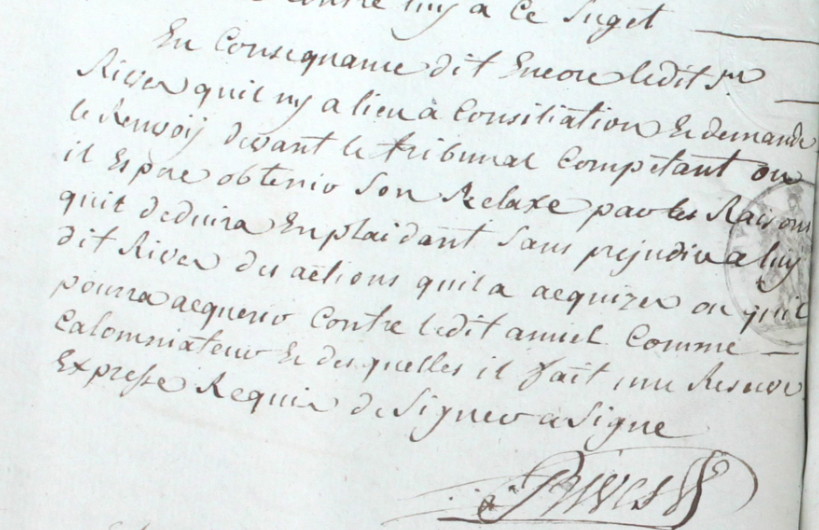 contre luy a Ce Suget
En Consequance dit Encore ledit sr
Rives quil ny a lieu à Consiliation Et demande
le Renvoÿ devant le tribunal Compétant ou
il Espere obtenir Son Relaxe par les Raisons
quil deduira En plaidant Sans prejudice a luy
dit Rives des actions quil a acquizes ou quil
pourra acquerir Contre ledit amiel Comme
Calomniateur Et desquelles il fait une Reserve
Expresse Requis de Signer a Signe
Rives